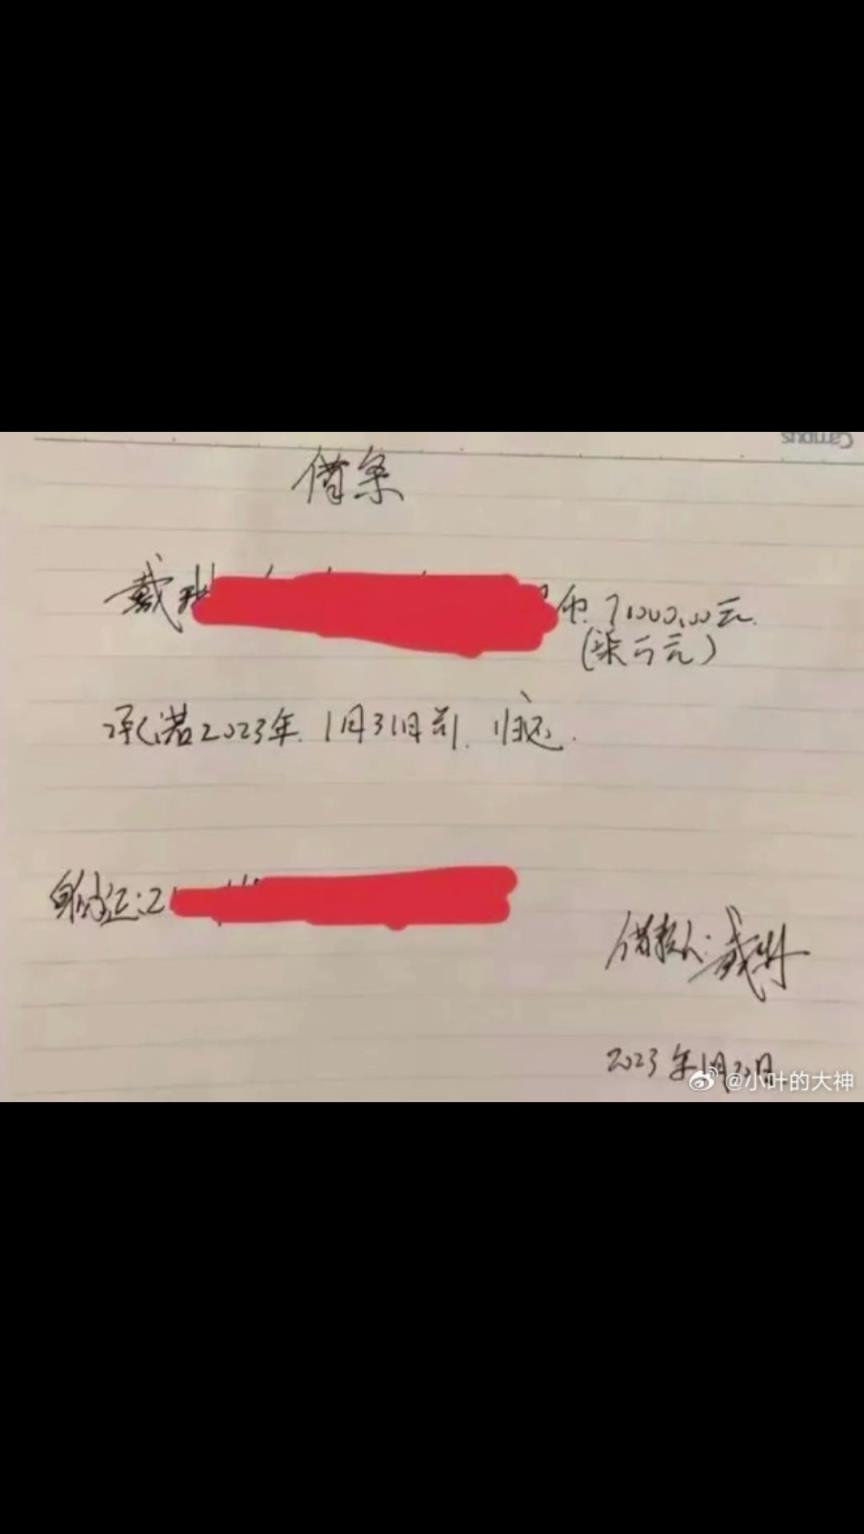 Campus
借条
戴琳 币 元.
(柒 元)
承诺2023年.1月31日前.归还.
身份证:2
借款人:戴琳
2023年1月20日
@小叶的大神